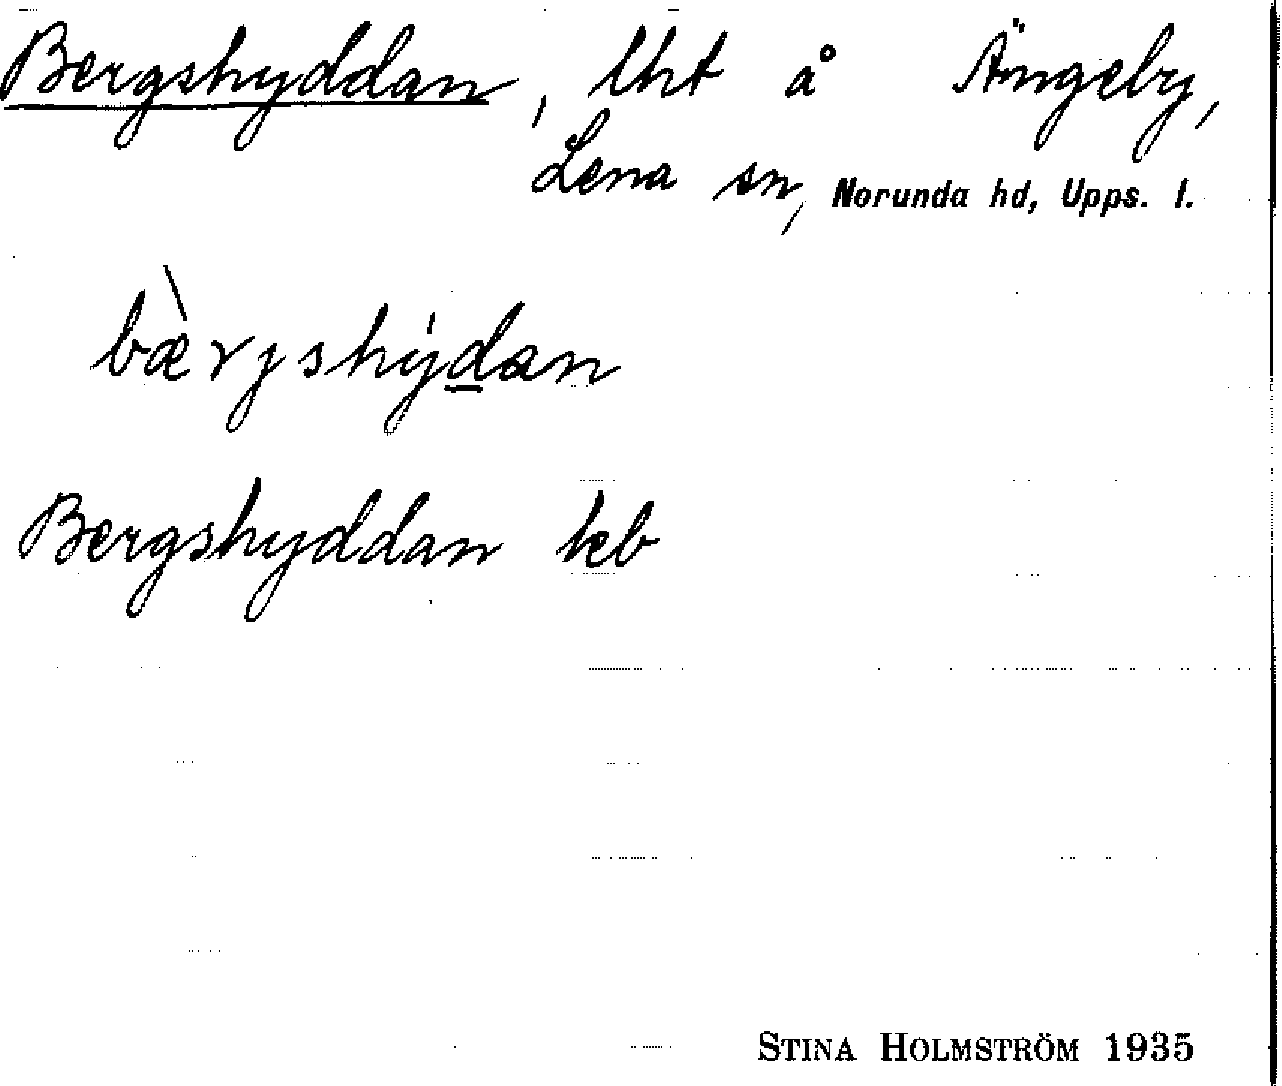 Bergshyddan, lht å Ängeby,
Lena sn, Norunda hd, Upps. l.
bæ̀rjshýdan
Bergshyddan keb
STINA HOLMSTRÖM 1935